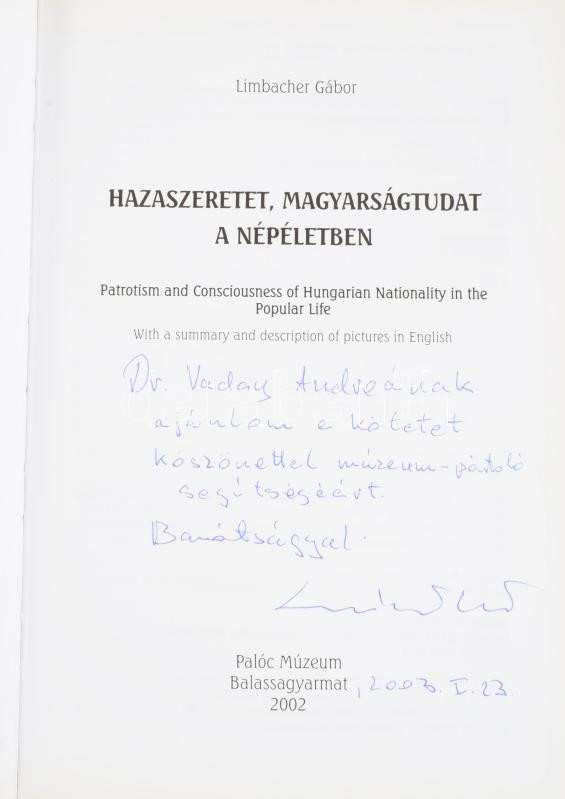 Limbacher Gábor
HAZASZERETET, MAGYARSÁGTUDAT
A NÉPÉLETBEN
Patrotism and Consciousness of Hungarian Nationality in the
Popular Life
With a summary and description of pictures in English
Dr. Vaday Andreának
ajánlom e kötetet
köszönettel múzeum-pártoló
segítségéért.
Barátsággal
Palóc Múzeum
Balassagyarmat, 2003. I. 23.
2002